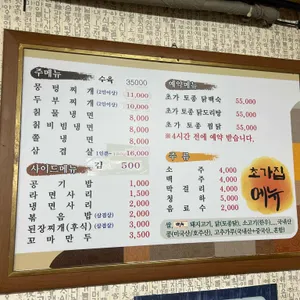 주메뉴
수육 35000
뭉텅찌개 (2인이상) 11,000
두부찌개 (2인이상) 10,000
칡물냉면 8,000
칡비빔냉면 8,000
콩국수 8,000
삼겹살 16,000
사이드메뉴
김 500
공기밥 1,000
라면사리 1,500
냉면사리 2,000
볶음밥 (삼겹살) 2,000
된장찌개(후식) (삼겹살) 3,000
꼬마만두 3,500
예약메뉴
초가 토종 닭백숙 55,000
초가 토종 닭도리탕 55,000
초가 토종 찜닭 55,000
※4시간 전에 예약 받습니다.
주류
소주 4,000
맥주 4,000
막걸리 4,000
청하 5,000
음료수 2,000
초가집
메뉴
쌀, 돼지고기, 닭(토종닭), 소고기(한우)...국내산
콩(미국산/호주산), 고추가루(국내산+중국산, 혼합)